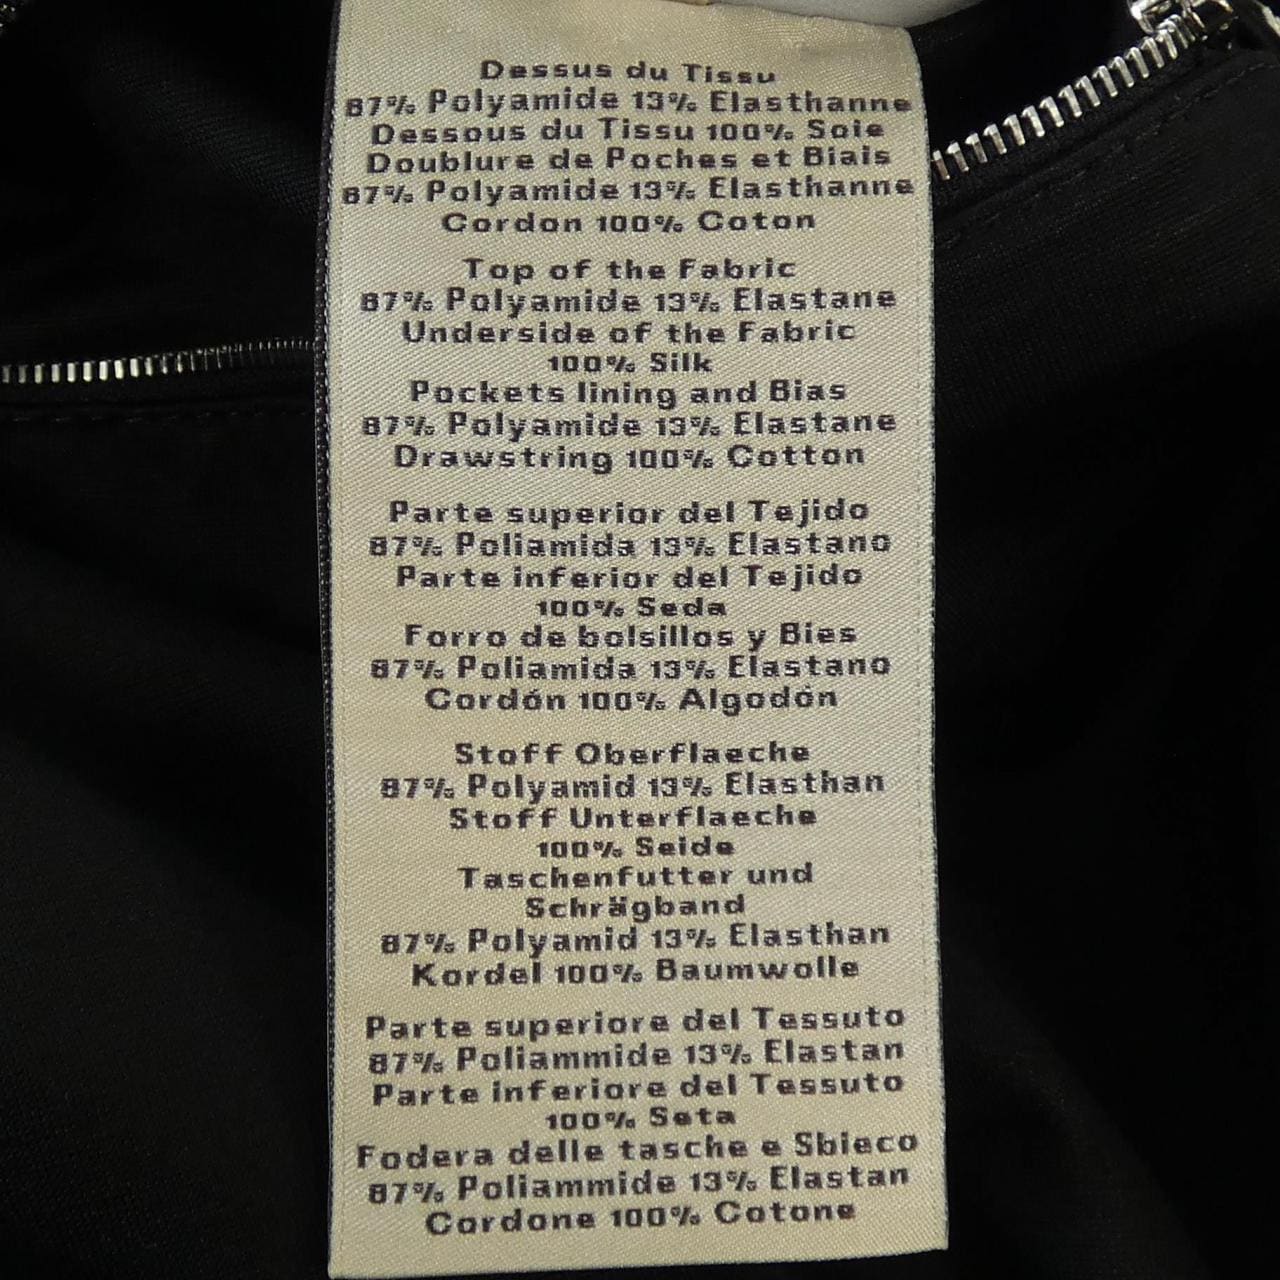 Dessus du Tissu
87% Polyamide 13% Elasthanne
Dessous du Tissu 100% Soie
Doublure de Poches et Biais
87% Polyamide 13% Elasthanne
Cordon 100% Coton
Top of the Fabric
87% Polyamide 13% Elastane
Underside of the Fabric
100% Silk
Pockets lining and Bias
87% Polyamide 13% Elastane
Drawstring 100% Cotton
Parte superior del Tejido
87% Poliamida 13% Elastano
Parte inferior del Tejido
100% Seda
Forro de bolsillos y Bies
87% Poliamida 13% Elastano
Cordón 100% Algodón
Stoff Oberflaeche
87% Polyamid 13% Elasthan
Stoff Unterflaeche
100% Seide
Taschenfutter und
Schrägband
87% Polyamid 13% Elasthan
Kordel 100% Baumwolle
Parte superiore del Tessuto
87% Poliammide 13% Elastan
Parte inferiore del Tessuto
100% Seta
Fodera delle tasche e Sbieco
87% Poliammide 13% Elastan
Cordone 100% Cotone